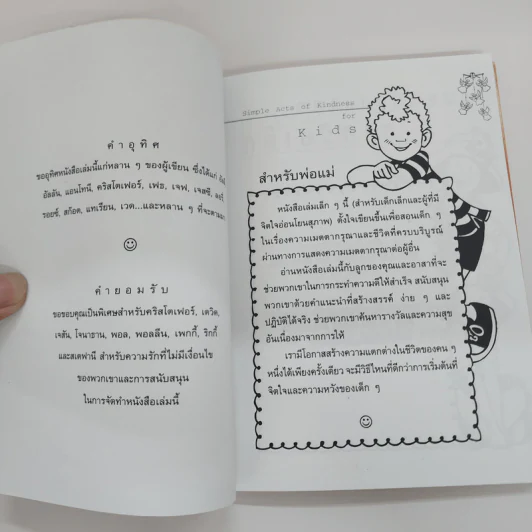 คำอุทิศ
ขออุทิศหนังสือเล่มนี้แก่หลาน ๆ ของผู้เขียน ซึ่งได้แก่
อัลลัน, แอนโทนี, คริสโตเฟอร์, เฟธ, เจฟ, เจสซี,
รอยซ์, สก๊อต, แทเรียน, เวด...และหลาน ๆ ที่จะตามมา
คำยอมรับ
ขอขอบคุณเป็นพิเศษสำหรับคริสโตเฟอร์, เดวิด,
เจสัน, โจนาธาน, พอล, พอลลีน, เพกกี้, ริกกี้
และสเตฟานี สำหรับความรักที่ไม่มีเงื่อนไข
ของพวกเขาและการสนับสนุน
ในการจัดทำหนังสือเล่มนี้
Simple Acts of Kindness
for
Kids
สำหรับพ่อแม่
หนังสือเล่มเล็ก ๆ นี้ (สำหรับเด็กเล็กและผู้ที่มี
จิตใจอ่อนโยนสุภาพ) ตั้งใจเขียนขึ้นเพื่อสอนเด็ก ๆ
ในเรื่องความเมตตากรุณาและชีวิตที่ครบบริบูรณ์
ผ่านทางการแสดงความเมตตากรุณาต่อผู้อื่น
อ่านหนังสือเล่มนี้กับลูกของคุณและอาสาที่จะ
ช่วยพวกเขาในการกระทำความดีให้สำเร็จ สนับสนุน
พวกเขาด้วยคำแนะนำที่สร้างสรรค์ ง่าย ๆ และ
ปฏิบัติได้จริง ช่วยพวกเขาค้นหารางวัลและความสุข
อันเนื่องมาจากการให้
เรามีโอกาสสร้างความแตกต่างในชีวิตของคน ๆ
หนึ่งได้เพียงครั้งเดียว จะมีวิธีไหนที่ดีกว่าการเริ่มต้นที่
จิตใจและความหวังของเด็ก ๆ